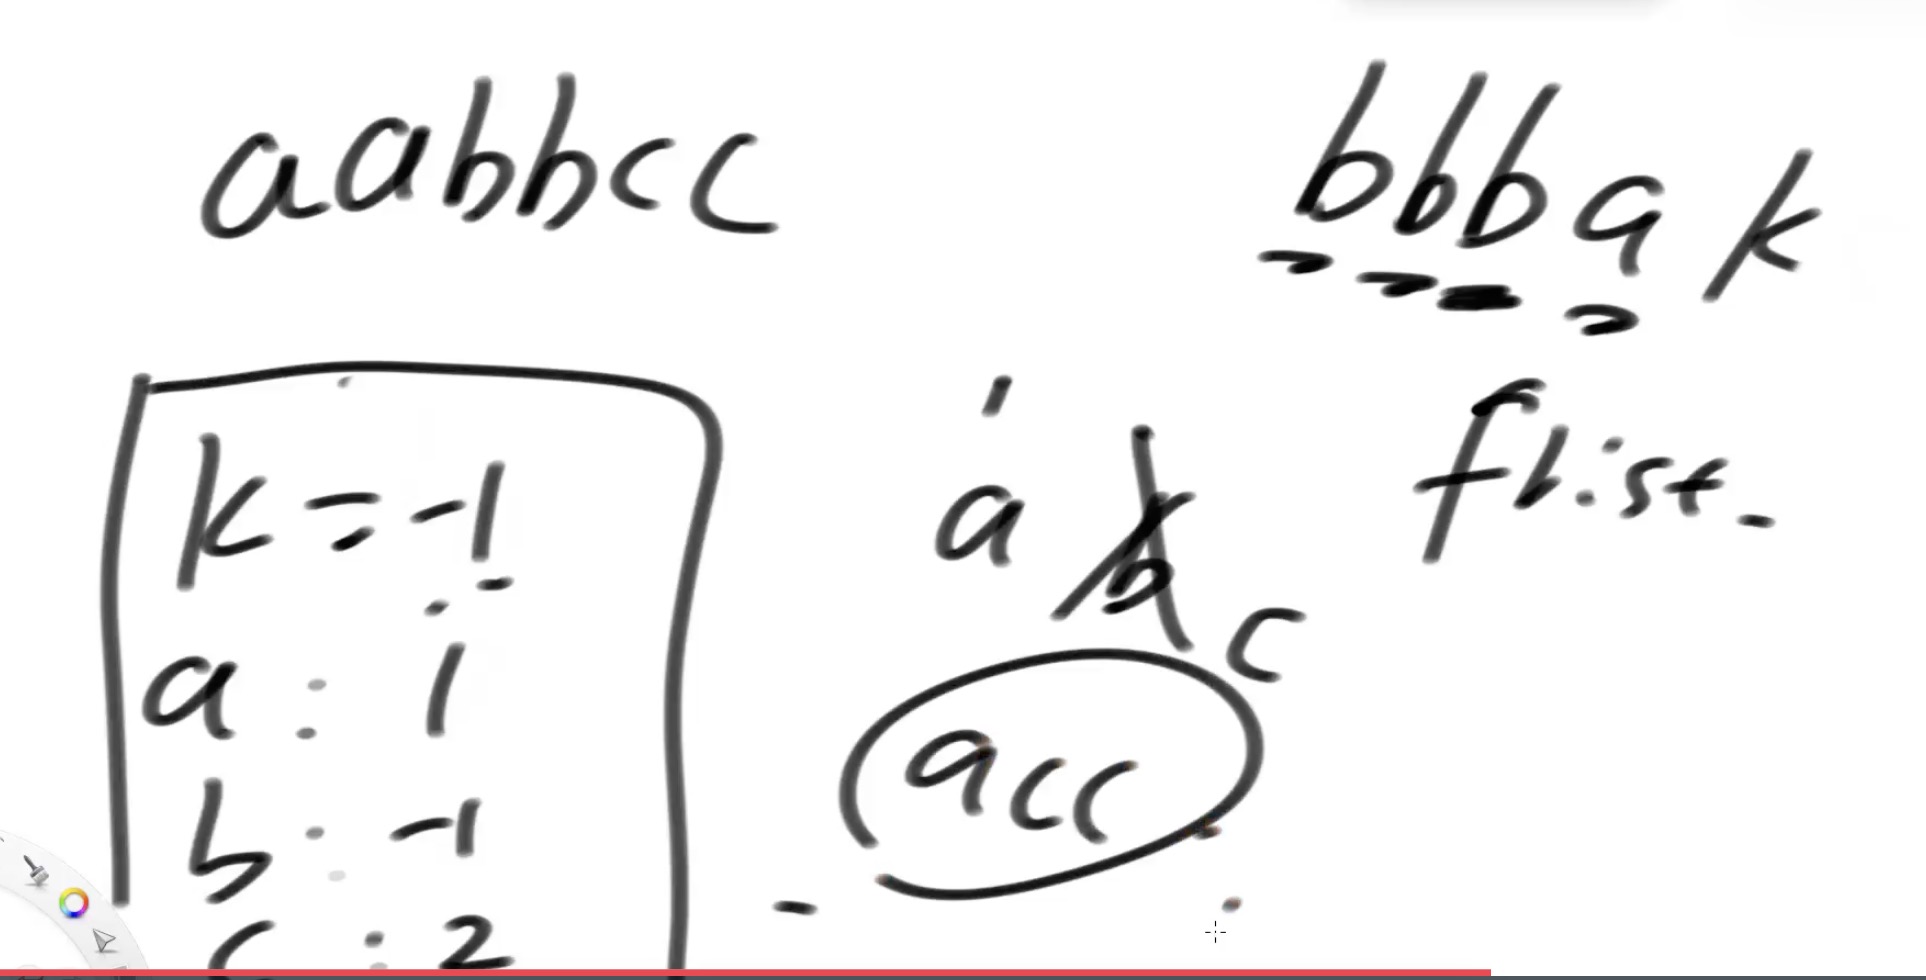 aabbcc
bbbak
k=-1
a:1
b:-1
c:2
a b c
acc